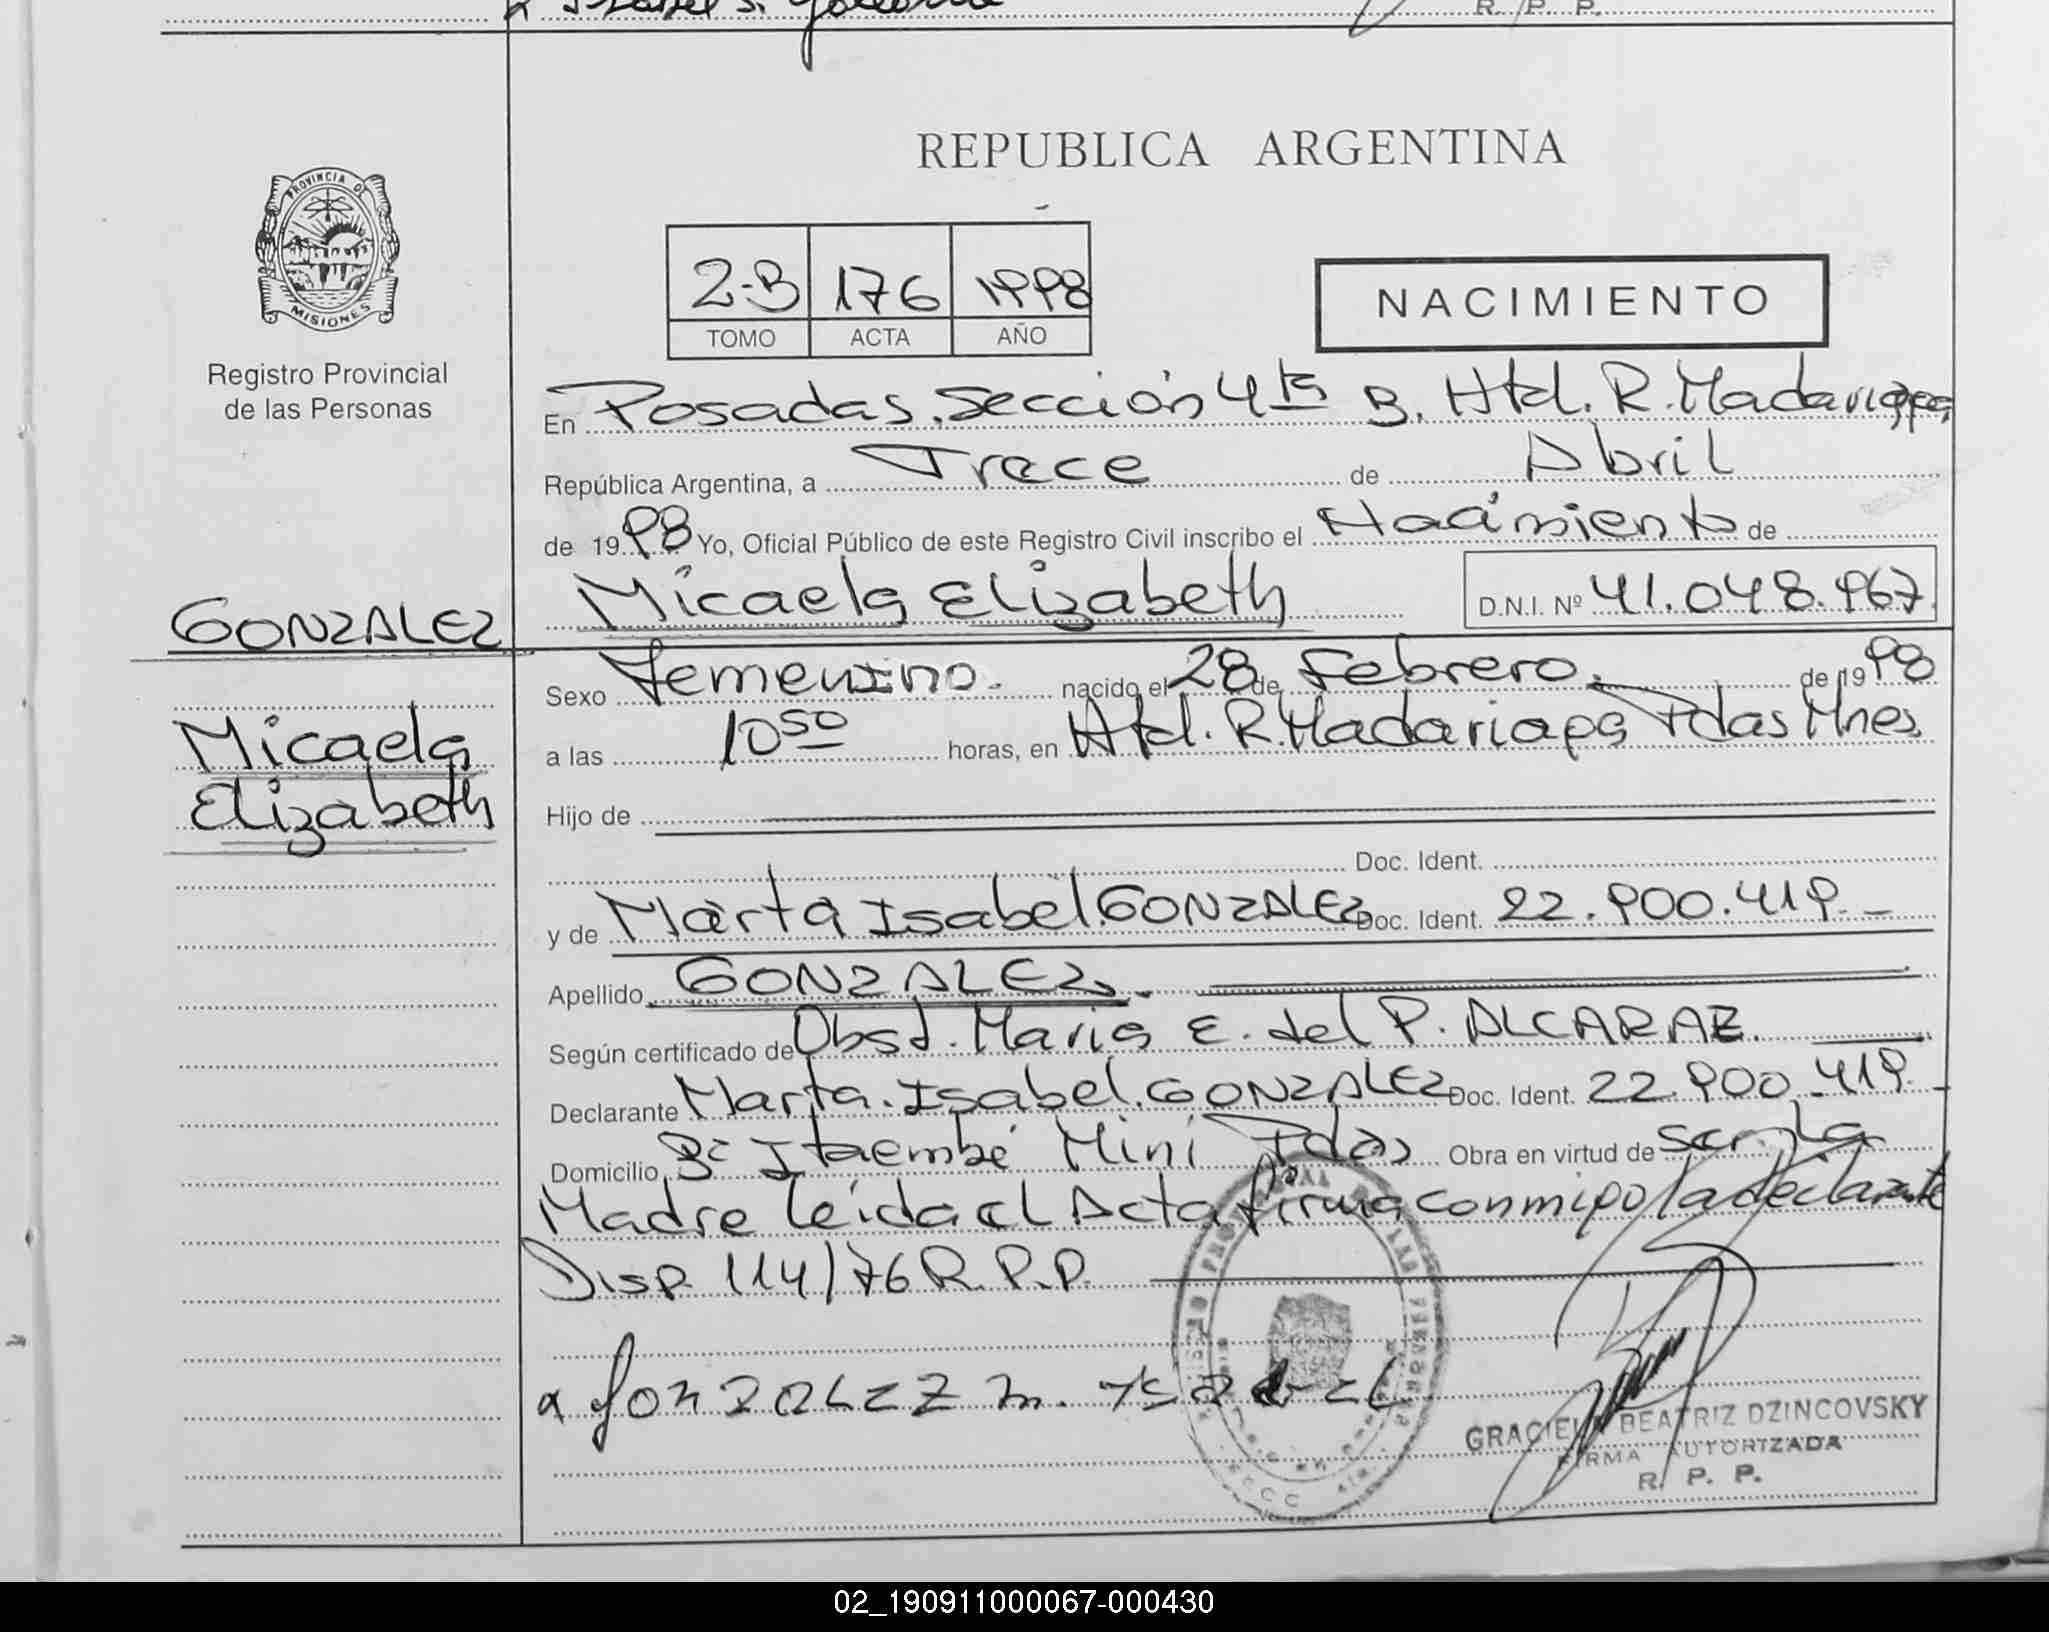 R. P. P.
REPUBLICA ARGENTINA
PROVINCIA DE
MISIONES
Registro Provincial
de las Personas
2-B 176 1998
TOMO ACTA AÑO
NACIMIENTO
En Posadas. Sección 4ta B. Htal. R. Madariaga
República Argentina, a Trece de Abril
de 1998 Yo, Oficial Público de este Registro Civil inscribo el Nacimiento de
GONZALEZ
Micaela Elizabeth D.N.I. Nº 41.048.967.
Micaela
Elizabeth
Sexo Femenino. nacido el 28 de Febrero. de 1998
a las 10 50 horas, en Htal. R. Madariaga Pdas Mnes.
Hijo de
Doc. Ident.
y de Marta Isabel. GONZALEZ Doc. Ident. 22.900.419.-
Apellido GONZALEZ.
Según certificado de Obst. Maria E. del P. ALCARAZ.
Declarante Marta. Isabel. GONZALEZ Doc. Ident. 22.900.419.-
Domicilio Bº Itaembé Miní Pdas Obra en virtud de ser la
Madre leída el Acta firma conmigo la declarante
Disp. 114/76 R.P.P.
x GONZALEZ M. ISABEL
GRACIELA BEATRIZ DZINCOVSKY
FIRMA AUTORIZADA
R. P. P.
02_190911000067-000430